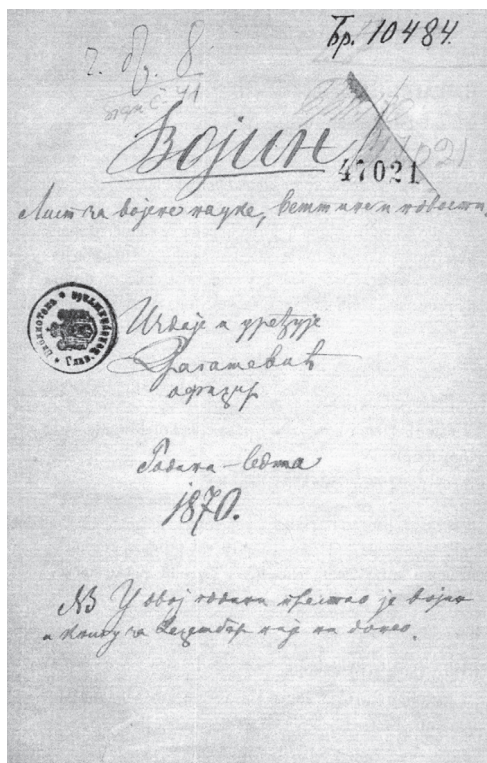 Бр. 10484.
Војин
47021
Лист за војене науке, вештине и новости.
Издаје и уређује
Драгашевић
официр
Година седма
1870.
NB У овој години престао је Војин
и књигу за Децембар није донео.